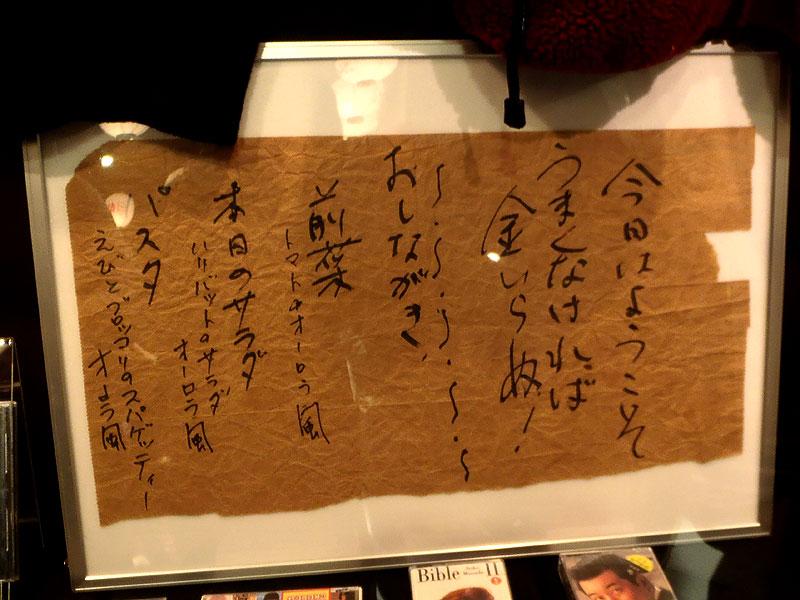 今日はようこそ
うまくなければ
金いらぬ!
~・~・~・~・~
おしながき
前菜
トマトのオーロラ風
本日のサラダ
オーロラ風
パスタ
えびとブロッコリのスパゲッティー
オーロラ風
Bible II
GOLDEN